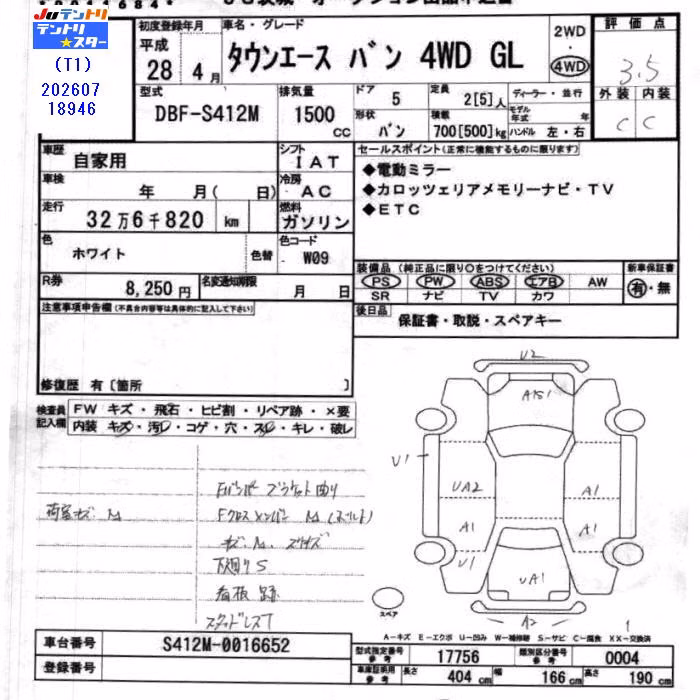 JUテントリ
テントリ★スター
(T1)
202607
18946
初度登録年月
平成
28年 4月
車名・グレード
タウンエース バン 4WD GL
2WD
・
4WD
評価点
3.5
外装 内装
C C
型式
DBF-S412M
排気量
1500
CC
ドア 5
形状 バン
定員 2[5]人
積載 700[500]kg
ディーラー・並行
モデル年式 年
ハンドル 左・右
車歴 自家用
シフト IAT
車検 年 月( 日)
冷房 AC
走行 32万6千820 km
燃料 ガソリン
色 ホワイト 色替
色コード W09
R券 8,250円
名変通知期限 月 日
セールスポイント(正常に機能するものに限ります)
◆電動ミラー
◆カロッツェリアメモリーナビ・TV
◆ETC
装備品 (純正品に限り○をつけてください)
PS PW ABS エアB AW
SR ナビ TV カワ
新車保証書
有・無
後日品 保証書・取説・スペアキー
注意事項申告欄(不具合内容等は具体的に記入して下さい)
修復歴 有[箇所 ]
検査員記入欄
FW キズ・飛石・ヒビ割・リペア跡・×要
内装 キズ・汚レ・コゲ・穴・スレ・キレ・破レ
荷室キズ M
Fバンパーブラケット曲り
Fクロスメンバー M
キズ、M、
下廻りS
看板跡
スタッドレスT
U2
A1S1
U1
UA2
A1
A1
A1
U1
UA1
A2
1
スペア
A-キズ E-エクボ U-凹み W-補修跡 S-サビ C-腐食 XX-交換済
車台番号 S412M-0016652
登録番号
型式指定番号 参考 17756
類別区分番号 参考 0004
車庫証明用 参考 長さ 404cm 幅 166cm 高さ 190cm